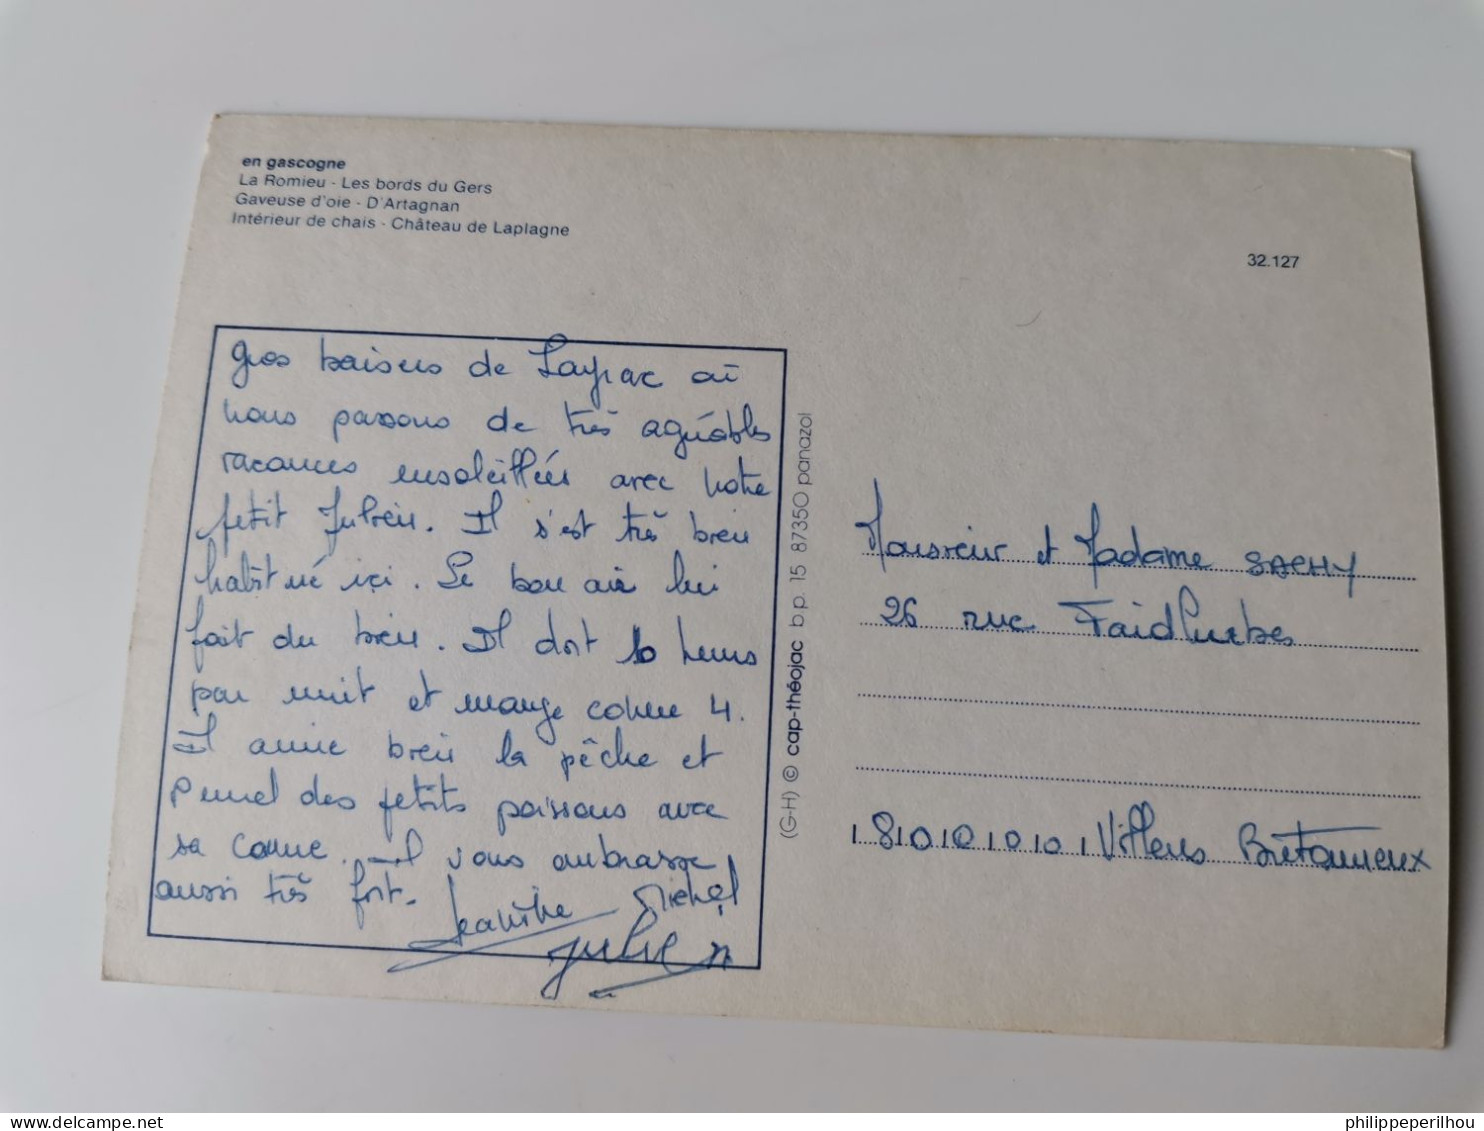 en gascogne
La Romieu - Les bords du Gers
Gaveuse d'oie - D'Artagnan
Intérieur de chais - Château de Laplagne
32.127
Gros baisers de Layrac où
nous passons de très agréables
vacances ensoleillées avec notre
petit Julien. Il s'est très bien
habitué ici. Le bon air lui
fait du bien. Il dort 10 heures
par nuit et mange comme 4.
Il aime bien la pêche et
prend des petits poissons avec
sa canne. Il vous embrasse
aussi très fort.
Michel
Julien
(G-H) © cap-théojac b.p. 15 87350 panazol
Monsieur et Madame SACHY
26 rue Faidherbe
80000 Villers Bretonneux
philippeperilhou